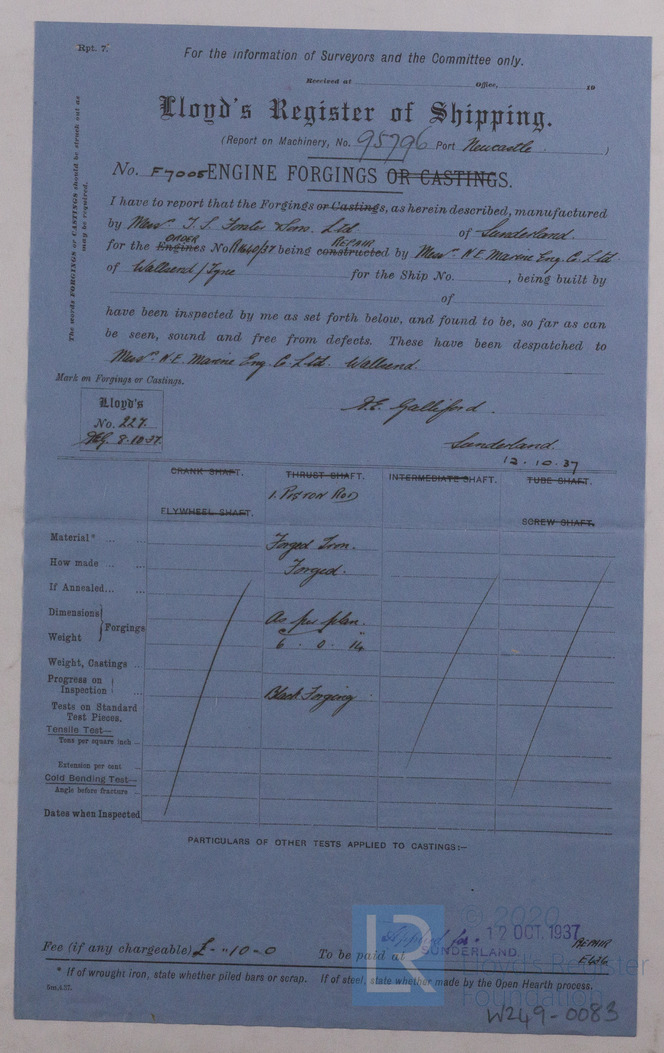 Rpt. 7.
For the information of Surveyors and the Committee only.
Received at Office, 19
Lloyd's Register of Shipping.
(Report on Machinery, No. 95796 Port Newcastle.)
No. F7005 ENGINE FORGINGS OR CASTINGS.
The words FORGINGS or CASTINGS should be struck out as
may be required.
I have to report that the Forgings or Castings, as herein described, manufactured
by Messrs. T. S. Forster & Sons. Ltd of Sunderland.
ORDER REPAIR
for the Engines No. being constructed by Messrs. N.E. Marine Eng. Co. Ltd
of Wallsend/Tyne for the Ship No. , being built by
of
have been inspected by me as set forth below, and found to be, so far as can
be seen, sound and free from defects. These have been despatched to
Messrs. N.E. Marine Eng. Co. Ltd. Wallsend.
Mark on Forgings or Castings.
Lloyd's
No. 227.
8.10.37.
Galliford.
Sunderland.
12.10.37
CRANK SHAFT. THRUST SHAFT. INTERMEDIATE SHAFT. TUBE SHAFT.
1. PISTON ROD
FLYWHEEL SHAFT. SCREW SHAFT.
Material* ... Forged Iron.
How made ... Forged.
If Annealed... ...
Dimensions } Forgings As per plan.
Weight 6 . 0 . 14
Weight, Castings ..
Progress on
Inspection } ... Black Forging
Tests on Standard
Test Pieces.
Tensile Test—
Tons per square inch ..
Extension per cent ..
Cold Bending Test—
Angle before fracture ..
Dates when Inspected
PARTICULARS OF OTHER TESTS APPLIED TO CASTINGS:—
Fee (if any chargeable) £ - " 10 - 0 To be paid at
Applied for.
12 OCT. 1937
SUNDERLAND.
REPAIR
* If of wrought iron, state whether piled bars or scrap. If of steel, state whether made by the Open Hearth process.
LR
© 2020
Lloyd's Register
Foundation
W249-0083